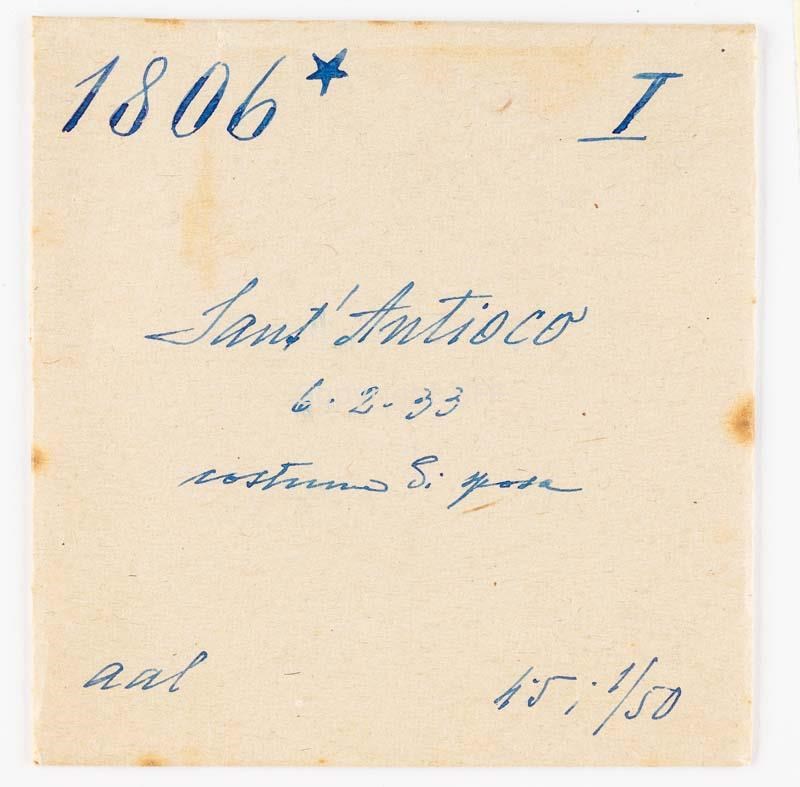 1806* I
Sant'Antioco
6.2.33
costume di sposa
aal 4.5; 1/50